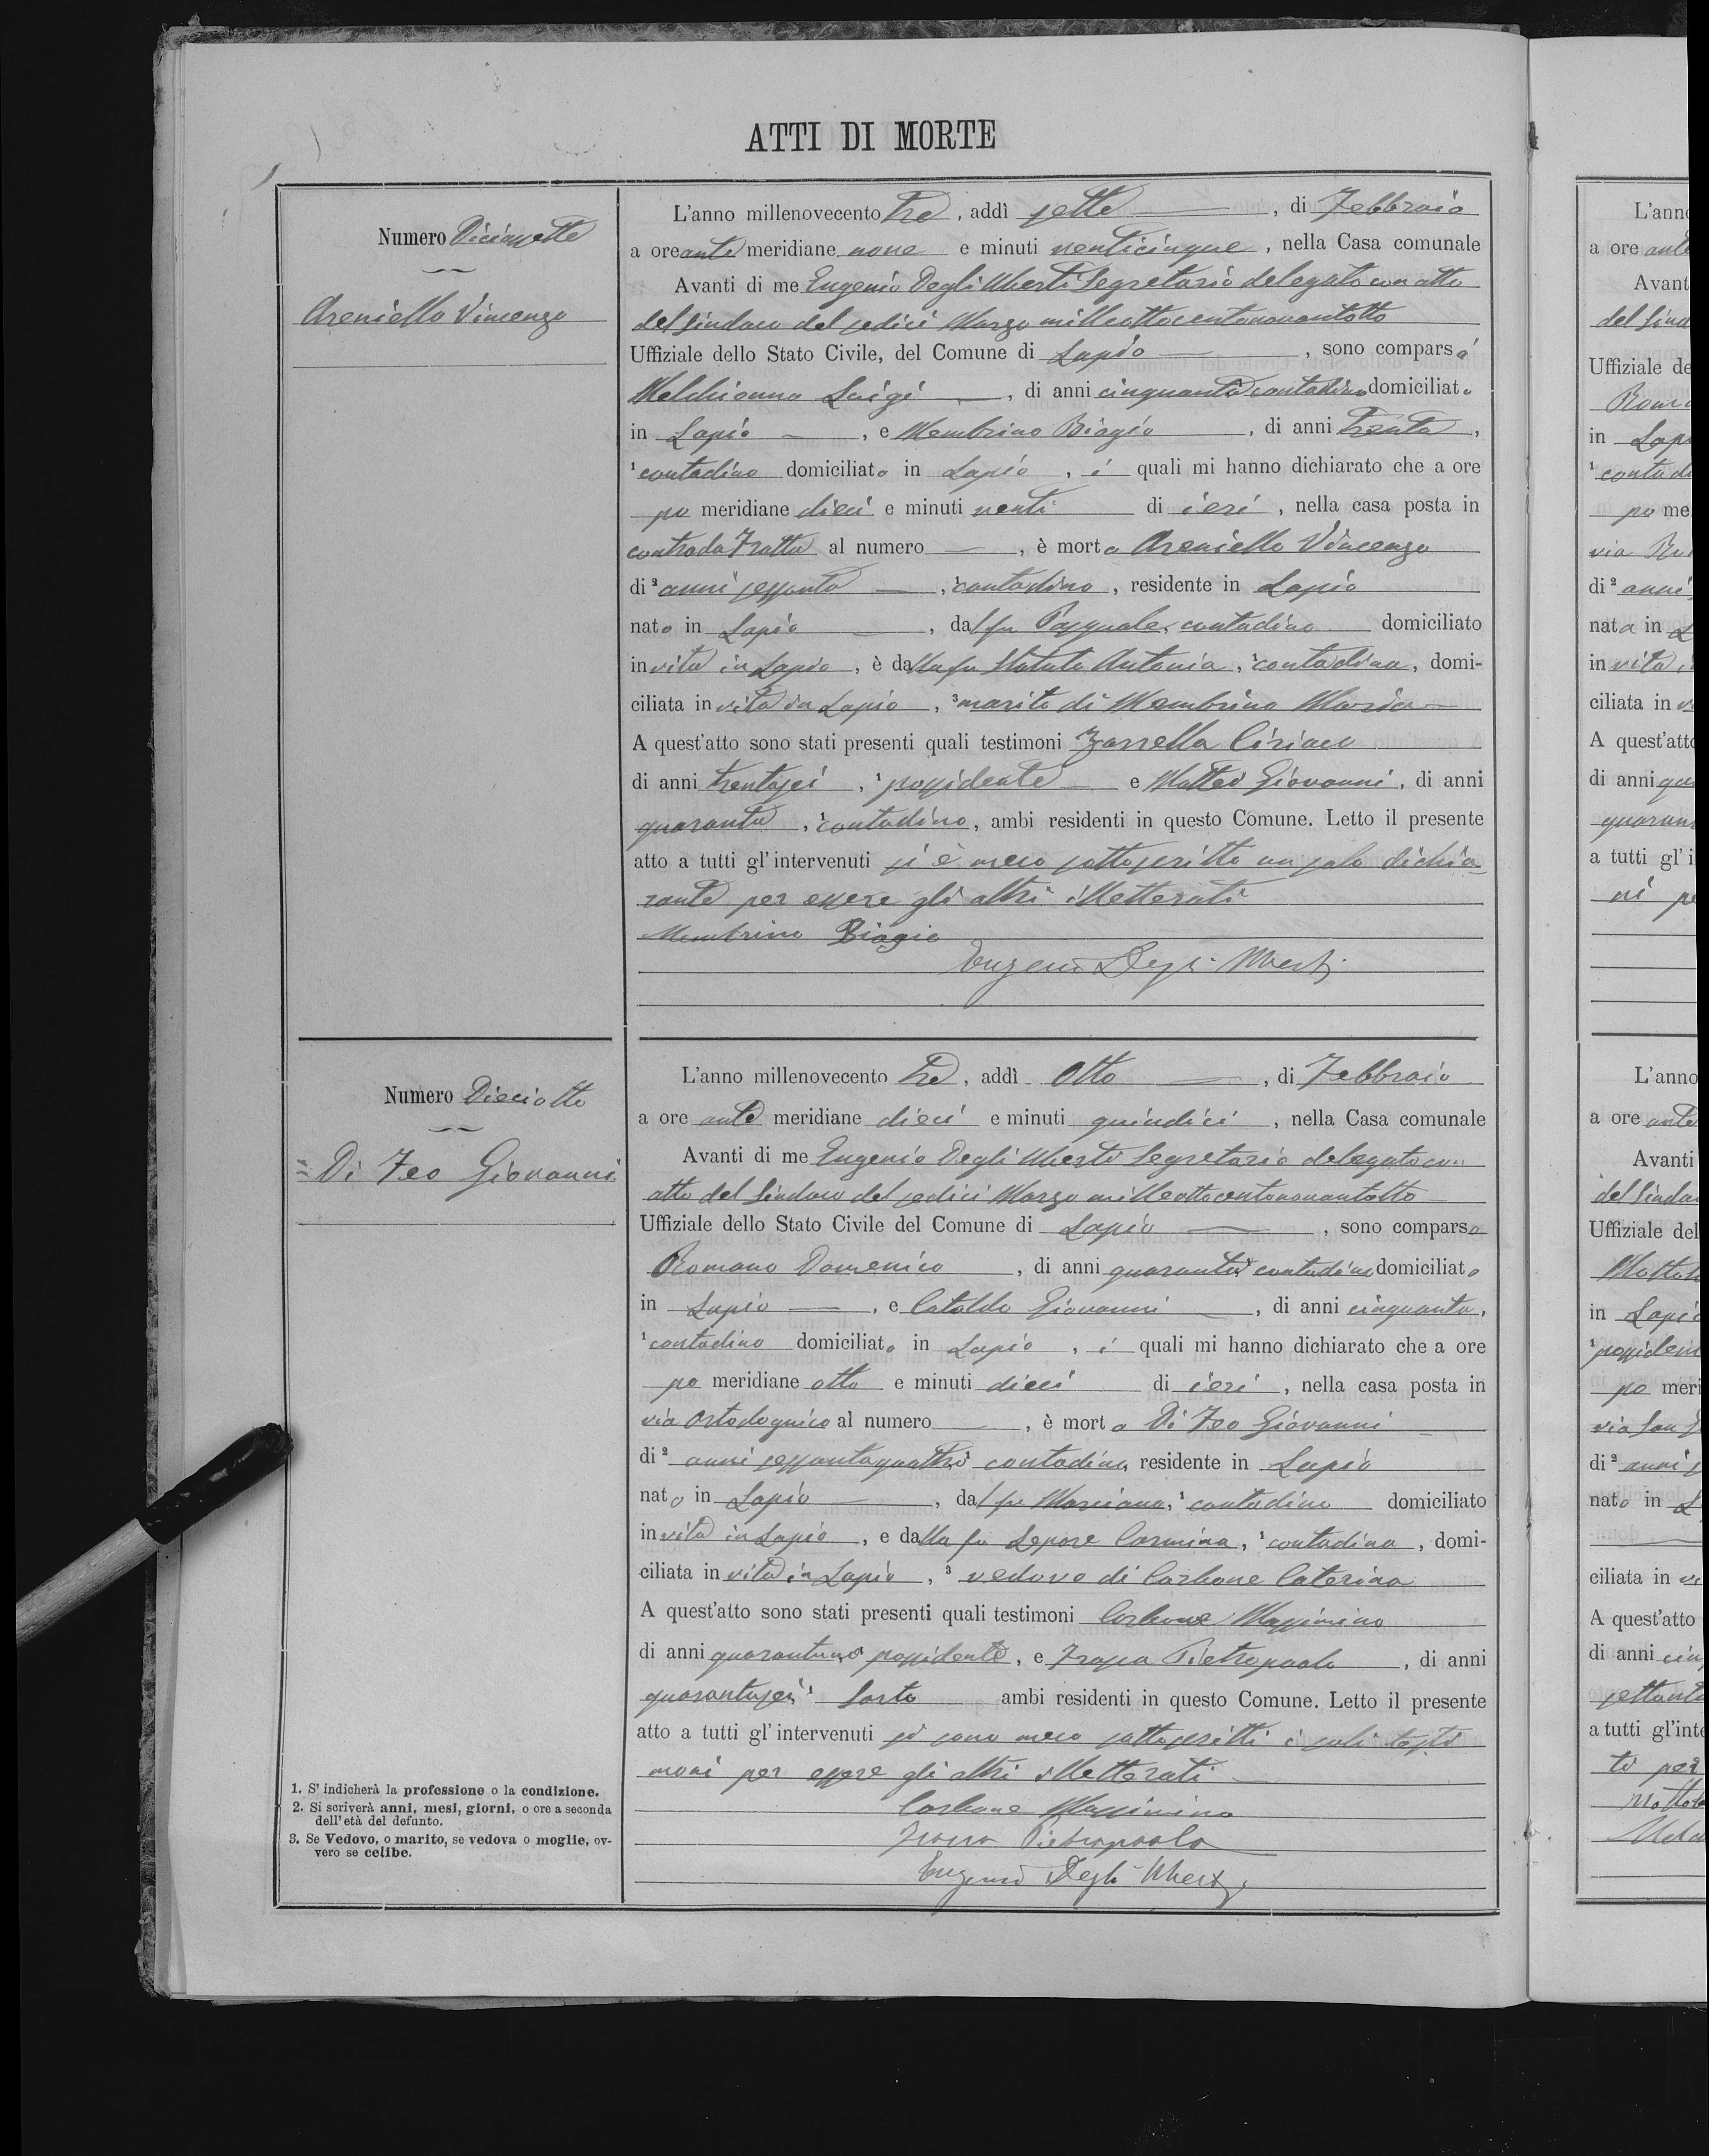 ATTI DI MORTE
Numero Diciassette
Areniello Vincenzo
L'anno millenovecento tre, addì sette, di Febbraio
a ore ante meridiane nove e minuti venticinque, nella Casa comunale
Avanti di me Eugenio Degli Uberti Segretario delegato con atto
del Sindaco del sedici Marzo milleottocentonovantotto
Uffiziale dello Stato Civile, del Comune di Lapio, sono comparsi
Melchionna Luigi, di anni cinquanta contadino domiciliato
in Lapio, e Membrino Biagio, di anni trenta,
1 contadino domiciliato in Lapio, i quali mi hanno dichiarato che a ore
po meridiane dieci e minuti venti di ieri, nella casa posta in
contrada Fratta al numero —, è morto Areniello Vincenzo
di 2 anni sessanta, 1 contadino, residente in Lapio
nato in Lapio, dal fu Pasquale, contadino domiciliato
in vita in Lapio, è dalla fu Statuto Antonia, 1 contadina, domi-
ciliata in vita in Lapio, 3 marito di Membrino Maria
A quest'atto sono stati presenti quali testimoni Zarrella Ciriaco
di anni trentasei, 1 possidente e Matteo Giovanni, di anni
quaranta, 1 contadino, ambi residenti in questo Comune. Letto il presente
atto a tutti gl'intervenuti si è meco sottoscritto un solo dichia
rante per essere gli altri illetterati
Membrino Biagio
Eugenio Degli Uberti
Numero Dieciotto
Di Feo Giovanni
L'anno millenovecento tre, addì Otto, di Febbraio
a ore ante meridiane dieci e minuti quindici, nella Casa comunale
Avanti di me Eugenio Degli Uberti Segretario delegato con
atto del Sindaco del sedici Marzo milleottocentonovantotto
Uffiziale dello Stato Civile del Comune di Lapio, sono comparsi
Romano Domenico, di anni quaranta contadino domiciliato
in Lapio, e Cataldo Giovanni, di anni cinquanta,
1 contadino domiciliato in Lapio, i quali mi hanno dichiarato che a ore
po meridiane otto e minuti dieci di ieri, nella casa posta in
via al numero —, è morto Di Feo Giovanni
di 2 anni sessantaquattro contadino residente in Lapio
nato in Lapio, dal fu Marciano, 1 contadino domiciliato
in vita in Lapio, e dalla fu Lepore Carmina, 1 contadina, domi-
ciliata in vita in Lapio, 3 vedovo di Carbone Caterina
A quest'atto sono stati presenti quali testimoni Carbone Massimino
di anni quarantuno possidente, e Pietropaolo, di anni
quarantasei, 1 Sarto ambi residenti in questo Comune. Letto il presente
atto a tutti gl'intervenuti si sono meco sottoscritti i soli testi
moni per essere gli altri illetterati
Carbone Massimino
Pietropaolo
Eugenio Degli Uberti
1. S'indicherà la professione o la condizione.
2. Si scriverà anni, mesi, giorni, o ore a seconda
dell'età del defunto.
3. Se Vedovo, o marito, se vedova o moglie, ov-
vero se celibe.
L'anno
a ore ante
Avant
del Sind
Uffiziale de
in Lapi
1 contad
po me
via
di 2 anni
nata in L
in vita
ciliata in
A quest'atto
di anni
quaran
a tutti gl'i
L'anno
a ore ante
Avanti
del Sinda
Uffiziale del
in Lapi
1 possiden
po meri
via San
di 2 anni
nato in L
ciliata in
A quest'atto
di anni
settanta
a tutti gl'inte
ti per